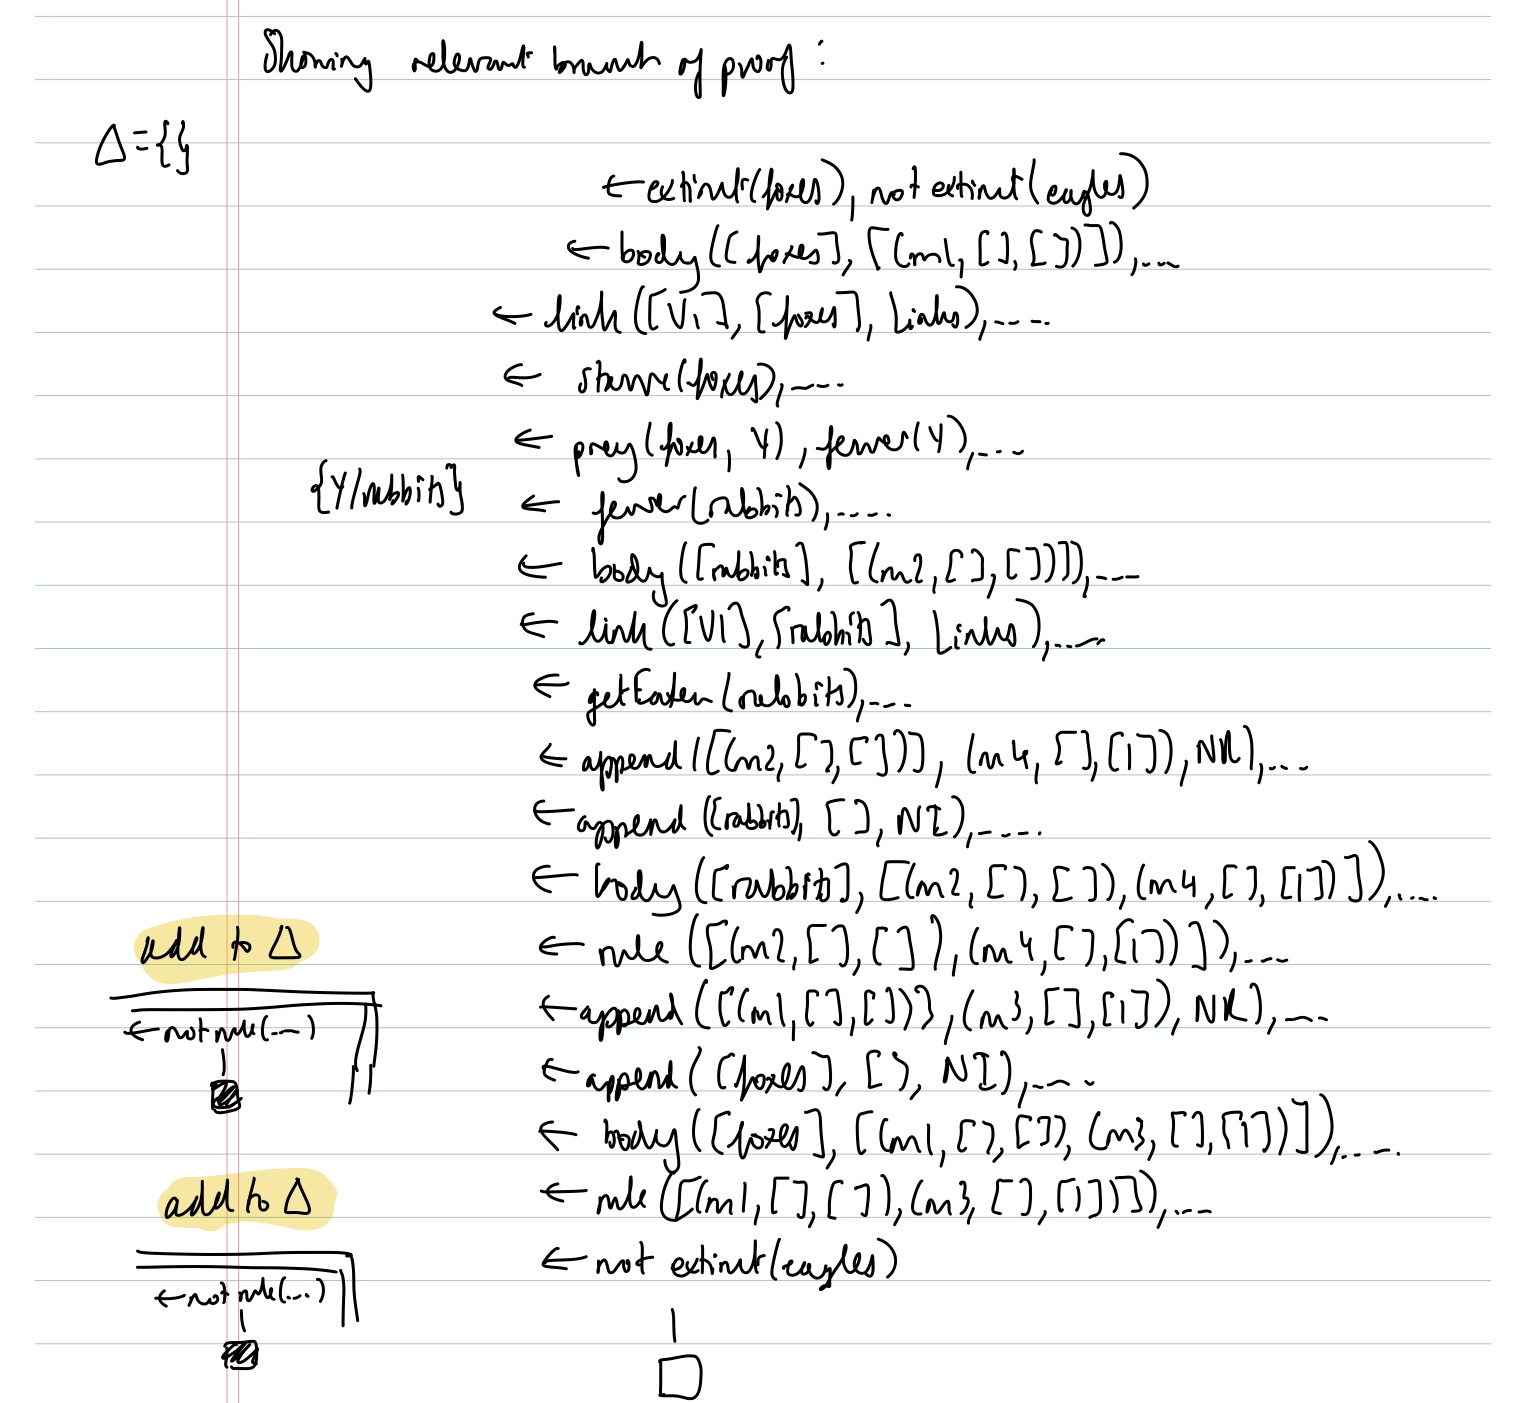 Showing relevant branch of proof:
Δ={}
← extinct(foxes), not extinct(eagles)
← body([foxes], [(m1, [], [])]),...
← link([V1], [foxes], Links),....
← starve(foxes),....
← prey(foxes, Y), fewer(Y),...
{Y/rabbits}
← fewer(rabbits),....
← body([rabbits], [(m2, [], [])]),...
← link([V1], [rabbits], Links),....
← getEaten(rabbits),...
← append([(m2, [], [])], (m4, [], [1]), NR),...
← append([rabbits], [], NI),....
← body([rabbits], [(m2, [], []), (m4, [], [1])]),....
add to Δ
← rule([(m2, [], []), (m4, [], [1])]),...
← append([(m1, [], [])], (m3, [], [1]), NR),...
← not rule(...)
← append([foxes], [], NI),...
← body([foxes], [(m1, [], []), (m3, [], [1])]),....
add to Δ
← rule([(m1, [], []), (m3, [], [1])]),...
← not extinct(eagles)
← not rule(...)